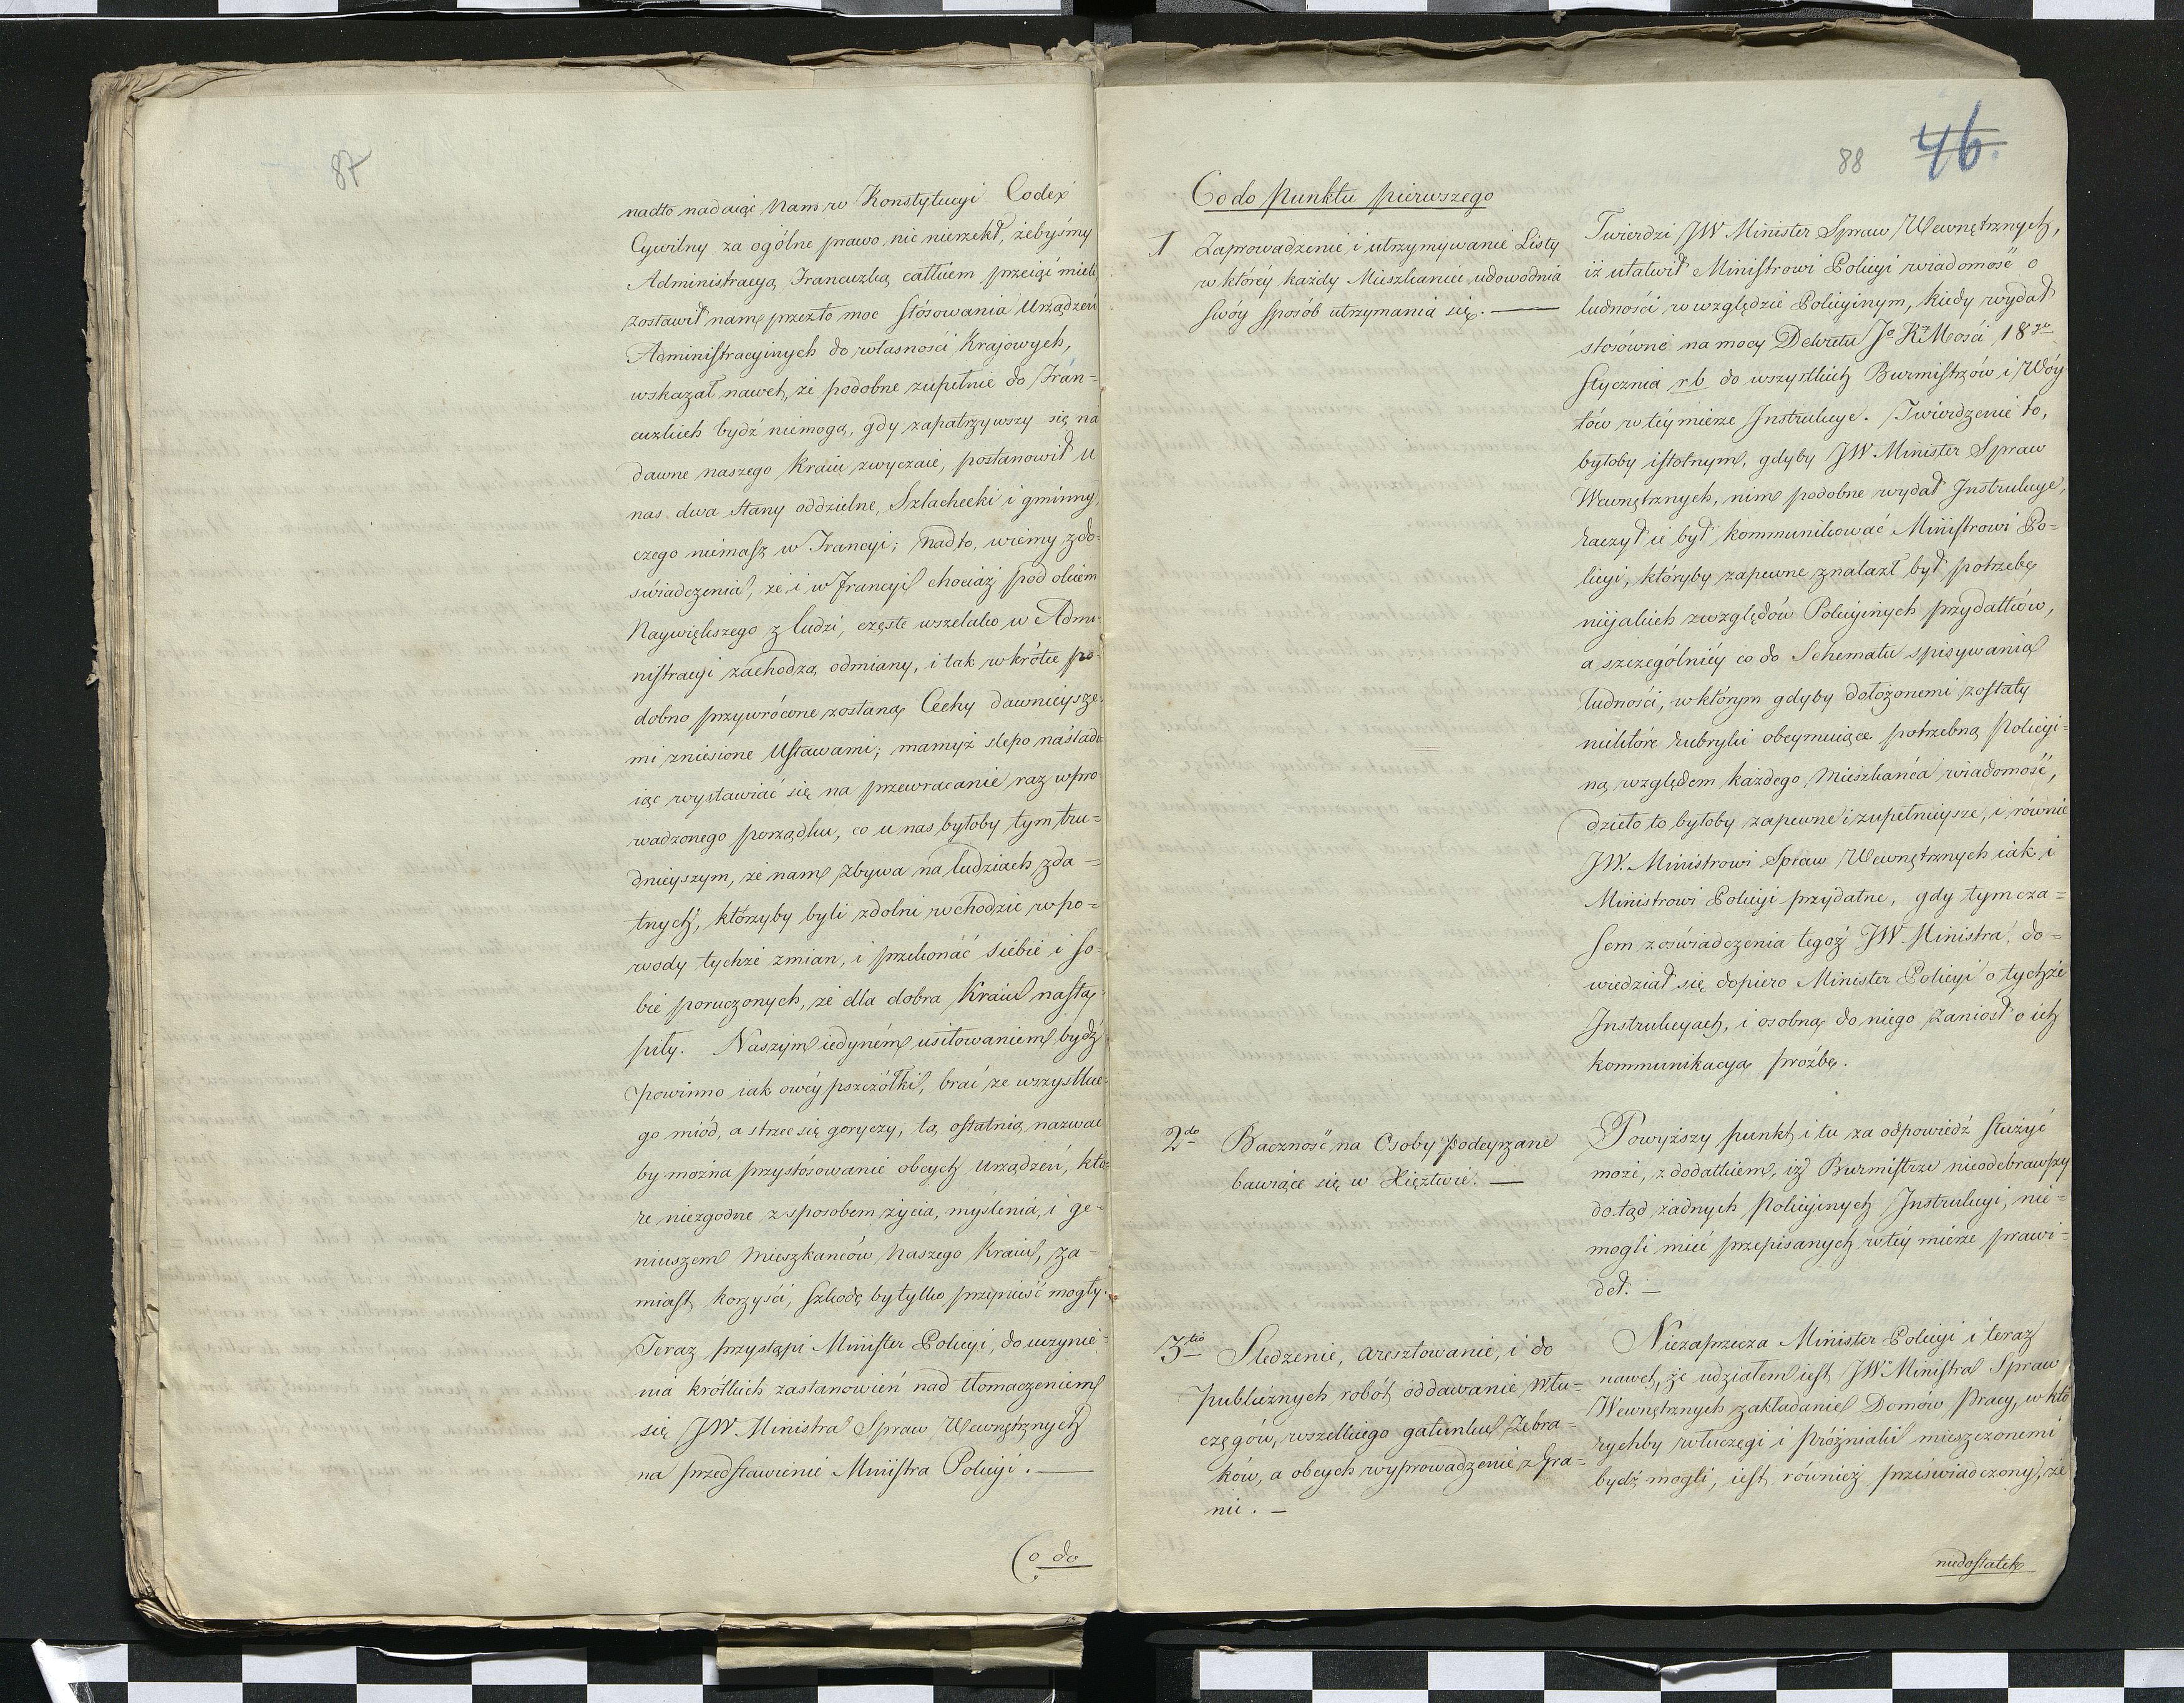 87
nadto nadaiąc Nam w Konstytucyi Codex
Cywilny za ogólne prawo, nic nierzekł, żebyśmy
Administracyą Francuzką całkiem przeiąć mieli,
zostawił nam przez to moc stósowania Urządzeń
Administracyinych do własności Krajowych,
wskazał nawet, że podobne zupełnie do Fran=
cuzkich bydź niemogą, gdy zapatrzywszy się na
dawne naszego Kraiu zwyczaie, postanowił u
nas dwa Stany oddzielne, Szlachecki i gminny,
czego niemasz w Francyi; Nadto, wiemy z do=
świadczenia, że i w Francyi chociaż pod okiem
Naywiększego z ludzi, częste wszelako w Admi=
nistracyi zachodzą odmiany, i tak wkrótce po=
dobno przywrócone zostaną Cechy dawnieysze=
mi zniesione Ustawami; mamyż slepo naśladu=
iąc wystawiać się na przewracanie raz wpro=
wadzonego porządku, co u nas byłoby tym tru=
dnieyszym, że nam zbywa na ludziach zda=
tnych, którzyby byli zdolni wchodzić w po=
wody tychże zmian, i przekonać siebie i so=
bie poruczonych, że dla dobra Kraiu nastą=
piły. Naszym iedyném usiłowaniem bydź
powinno iak owéy pszczółki, brać ze wszystkie=
go miód, a strzec się goryczy, tą ostatnią nazwać
by można przystósowanie obcych Urządzeń, któ=
re niezgodne z sposobem życia, myślenia, i ge=
niuszem Mieszkańców Naszego Kraiu, za=
miast korzyści, szkodę by tylko przynieść mogły.
Teraz przystąpi Minister Policyi, do uczynie=
nia krótkich zastanowień nad tłomaczeniem
się JW Ministra Spraw Wewnętrznych
na przedstawienie Ministra Policyi. —
Co do
88
46.
Co do Punktu pierwszego
1 Zaprowadzenie i utrzymywanie Listy
w któréy każdy Mieszkaniec udowodnia
swóy sposób utrzymania się. —
Twierdzi JW Minister Spraw Wewnętrznych,
iż ułatwił Ministrowi Policyi wiadomość o
ludności w względzie Policyinym, kiedy wydał
stósownie na mocy Dekretu Jo K. Mości 18go
Stycznia r b do wszystkich Burmistrzów i Wóy
tów w téy mierze Instrukcye. Twierdzenie to,
byłoby istotnym, gdyby JW Minister Spraw
Wewnętrznych, nim podobne wydał Instrukcye,
raczył ie był kommunikować Ministrowi Po=
licyi, któryby zapewne znalazł był potrzebę
nijakich z względów Policyinych przydatków,
a szczególniéy co do Schematu spisywania
ludności, w którym gdyby dołożonemi zostały
niektóre rubryki obeymuiące potrzebną Policyi=
ną względem każdego Mieszkańca wiadomość,
dzieło to byłoby zapewne i zupełnieysze, i równie
JW. Ministrowi Spraw Wewnętrznych iak i
Ministrowi Policyi przydatne, gdy tymcza=
sem z oświadczenia tegoż JW. Ministra, do=
wiedział się dopiero Minister Policyi o tychże
Instrukcyach, i osobną do niego zaniósł o ich
kommunikacyą proźbę.
2do Baczność na Osoby Podeyrzane
bawiące się w Xięztwie. —
Powyższy punkt i tu za odpowiedź służyć
może, z dodatkiem, iż Burmistrze nieodebrawszy
do tąd żadnych Policyinych Instrukcyi, nie=
mogli mieć przepisanych w téy mierze prawi=
deł. —
3tio Sledzenie, aresztowanie, i do
publicznych robót oddawanie Włu=
częgów, wszelkiego gatunku Żebra=
ków, a obcych wyprowadzenie z Gra=
nic. —
Niezaprzecza Minister Policyi i teraz
nawet, że udziałem iest JW Ministra Spraw
Wewnętrznych zakładanie Domów Pracy, w któ
rychby włuczęgi i próżniaki mieszczonemi
bydź mogli, iest również przeświadczony, że
niedostatek